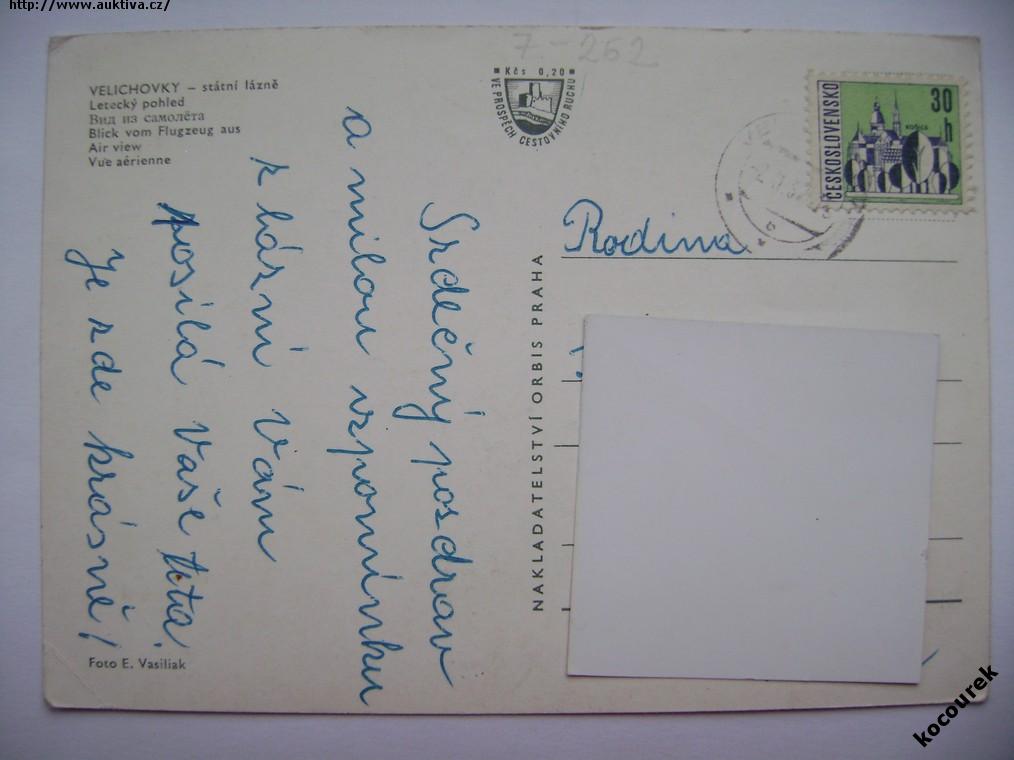 http://www.auktiva.cz/
7-262
VELICHOVKY – státní lázně
Letecký pohled
Вид из самолёта
Blick vom Flugzeug aus
Air view
Vue aérienne
Kčs 0,20
VE PROSPĚCH CESTOVNÍHO RUCHU
ČESKOSLOVENSKO
30 h
KOŠICE
Srdečný posdrav
a milou vzpomínku
z lázní Vám
posílá Vaše teta!
Je zde krásně!
NAKLADATELSTVÍ ORBIS PRAHA
Rodina
Foto E. Vasiliak
kocourek